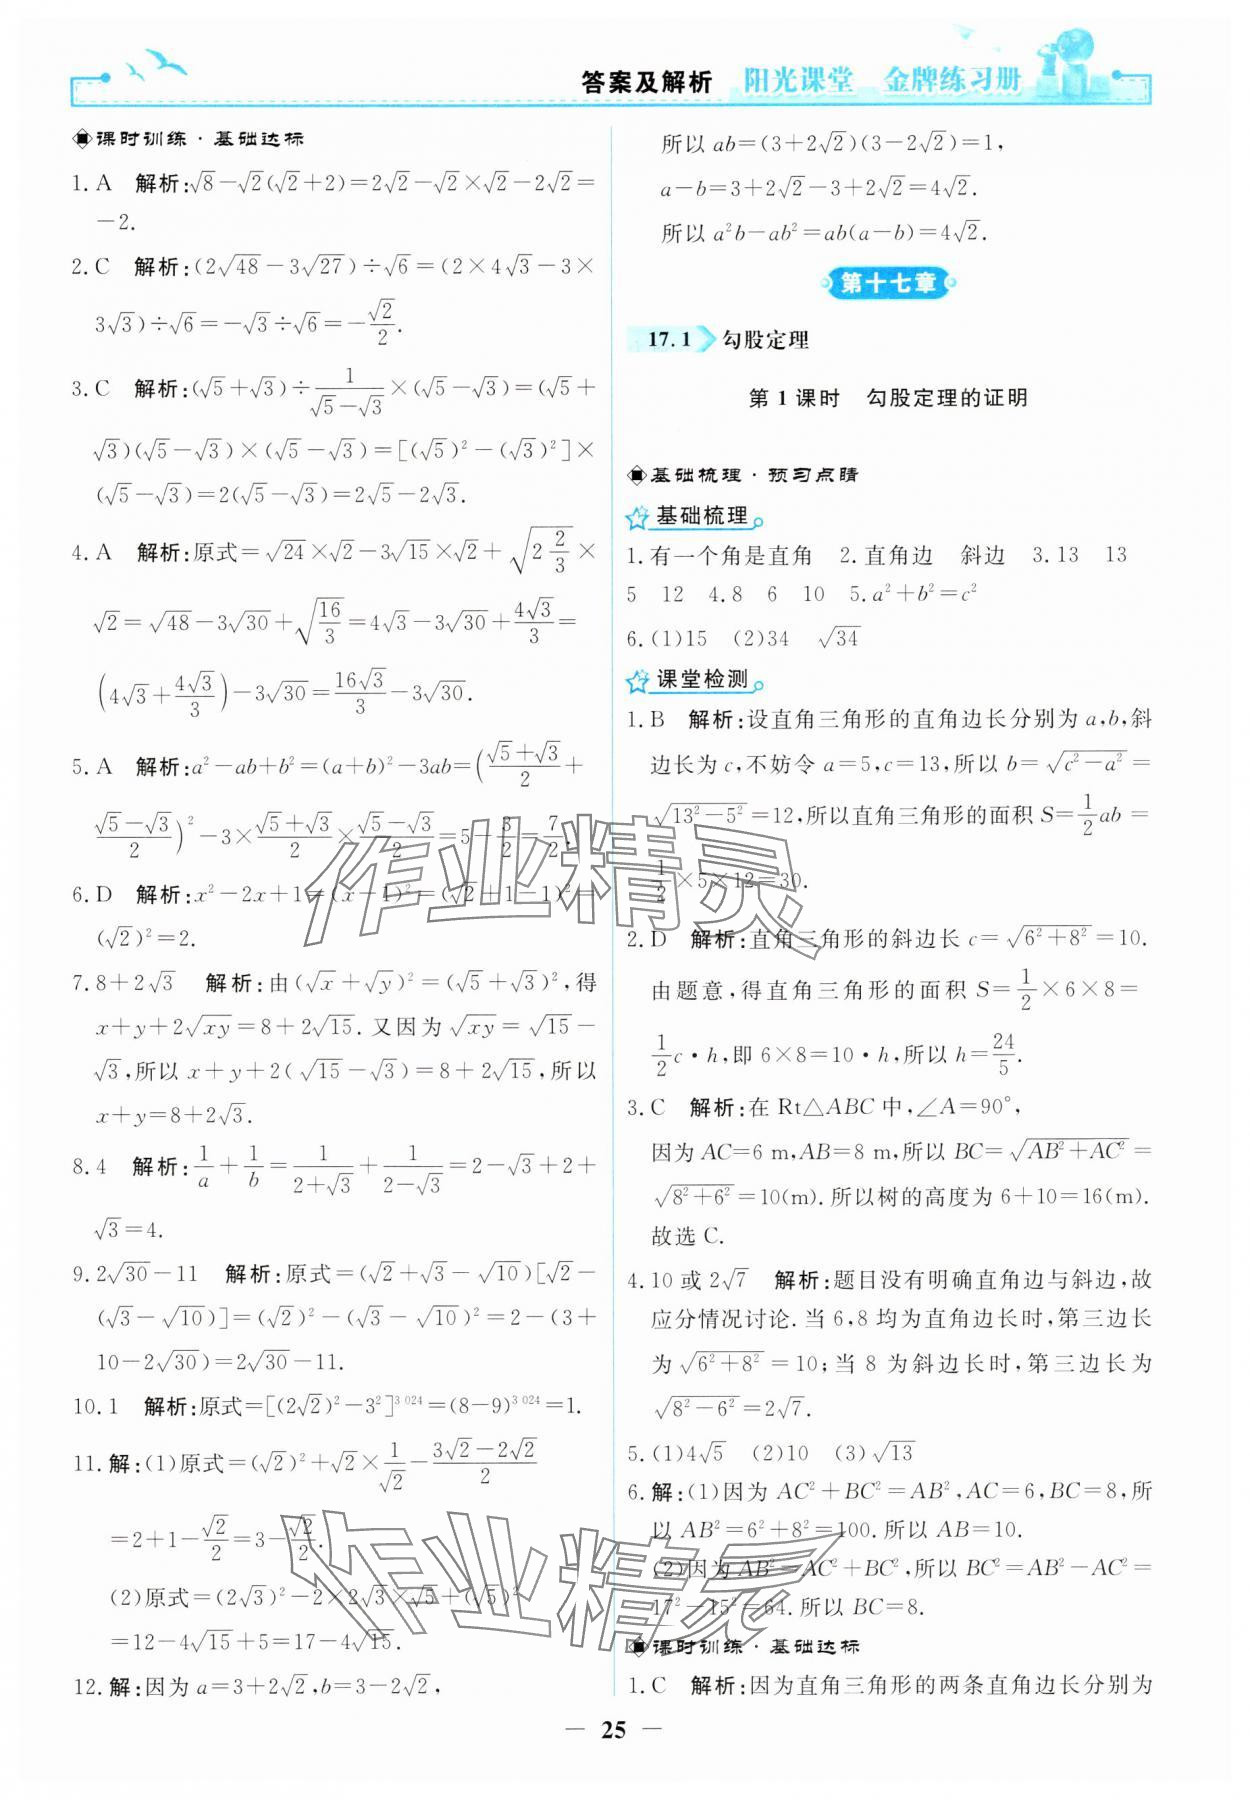 答案及解析 阳光课堂 金牌练习册
课时训练·基础达标
1. A 解析:√8-√2(√2+2)=2√2-√2×√2-2√2=
-2.
2. C 解析:(2√48-3√27)÷√6=(2×4√3-3×
3√3)÷√6=-√3÷√6=-√2/2.
3. C 解析:(√5+√3)÷1/(√5-√3)×(√5-√3)=(√5+
√3)(√5-√3)×(√5-√3)=[(√5)²-(√3)²]×
(√5-√3)=2(√5-√3)=2√5-2√3.
4. A 解析:原式=√24×√2-3√15×√2+√(2 2/3)×
√2=√48-3√30+√(16/3)=4√3-3√30+4√3/3=
(4√3+4√3/3)-3√30=16√3/3-3√30.
5. A 解析:a²-ab+b²=(a+b)²-3ab=((√5+√3)/2+
(√5-√3)/2)²-3×(√5+√3)/2×(√5-√3)/2=5-3/2=7/2.
6. D 解析:x²-2x+1=(x-1)²=(√2+1-1)²=
(√2)²=2.
7. 8+2√3 解析:由(√x+√y)²=(√5+√3)²,得
x+y+2√xy=8+2√15.又因为√xy=√15-
√3,所以x+y+2(√15-√3)=8+2√15,所以
x+y=8+2√3.
8. 4 解析:1/a+1/b=1/(2+√3)+1/(2-√3)=2-√3+2+
√3=4.
9. 2√30-11 解析:原式=(√2+√3-√10)[√2-
(√3-√10)]=(√2)²-(√3-√10)²=2-(3+
10-2√30)=2√30-11.
10. 1 解析:原式=[(2√2)²-3²]³ ⁰²⁴=(8-9)³ ⁰²⁴=1.
11. 解:(1)原式=(√2)²+√2×1/√2-(3√2-2√2)/2
=2+1-√2/2=3-√2/2.
(2)原式=(2√3)²-2×2√3×√5+(√5)²
=12-4√15+5=17-4√15.
12. 解:因为a=3+2√2,b=3-2√2,
所以ab=(3+2√2)(3-2√2)=1,
a-b=3+2√2-3+2√2=4√2.
所以a²b-ab²=ab(a-b)=4√2.
第十七章
17.1 勾股定理
第1课时 勾股定理的证明
基础梳理·预习点睛
基础梳理
1. 有一个角是直角 2. 直角边 斜边 3. 13 13
5 12 4. 8 6 10 5. a²+b²=c²
6. (1)15 (2)34 √34
课堂检测
1. B 解析:设直角三角形的直角边长分别为a,b,斜
边长为c,不妨令a=5,c=13,所以b=√(c²-a²)=
√(13²-5²)=12,所以直角三角形的面积S=1/2ab=
1/2×5×12=30.
2. D 解析:直角三角形的斜边长c=√(6²+8²)=10.
由题意,得直角三角形的面积S=1/2×6×8=
1/2c·h,即6×8=10·h,所以h=24/5.
3. C 解析:在Rt△ABC中,∠A=90°,
因为AC=6 m,AB=8 m,所以BC=√(AB²+AC²)=
√(8²+6²)=10(m).所以树的高度为6+10=16(m).
故选C.
4. 10或2√7 解析:题目没有明确直角边与斜边,故
应分情况讨论.当6,8均为直角边长时,第三边长
为√(6²+8²)=10;当8为斜边长时,第三边长为
√(8²-6²)=2√7.
5. (1)4√5 (2)10 (3)√13
6. 解:(1)因为AC²+BC²=AB²,AC=6,BC=8,所
以AB²=6²+8²=100.所以AB=10.
(2)因为AB²=AC²+BC²,所以BC²=AB²-AC²=
17²-15²=64.所以BC=8.
课时训练·基础达标
1. C 解析:因为直角三角形的两条直角边长分别为
作业精灵
作业精灵
— 25 —